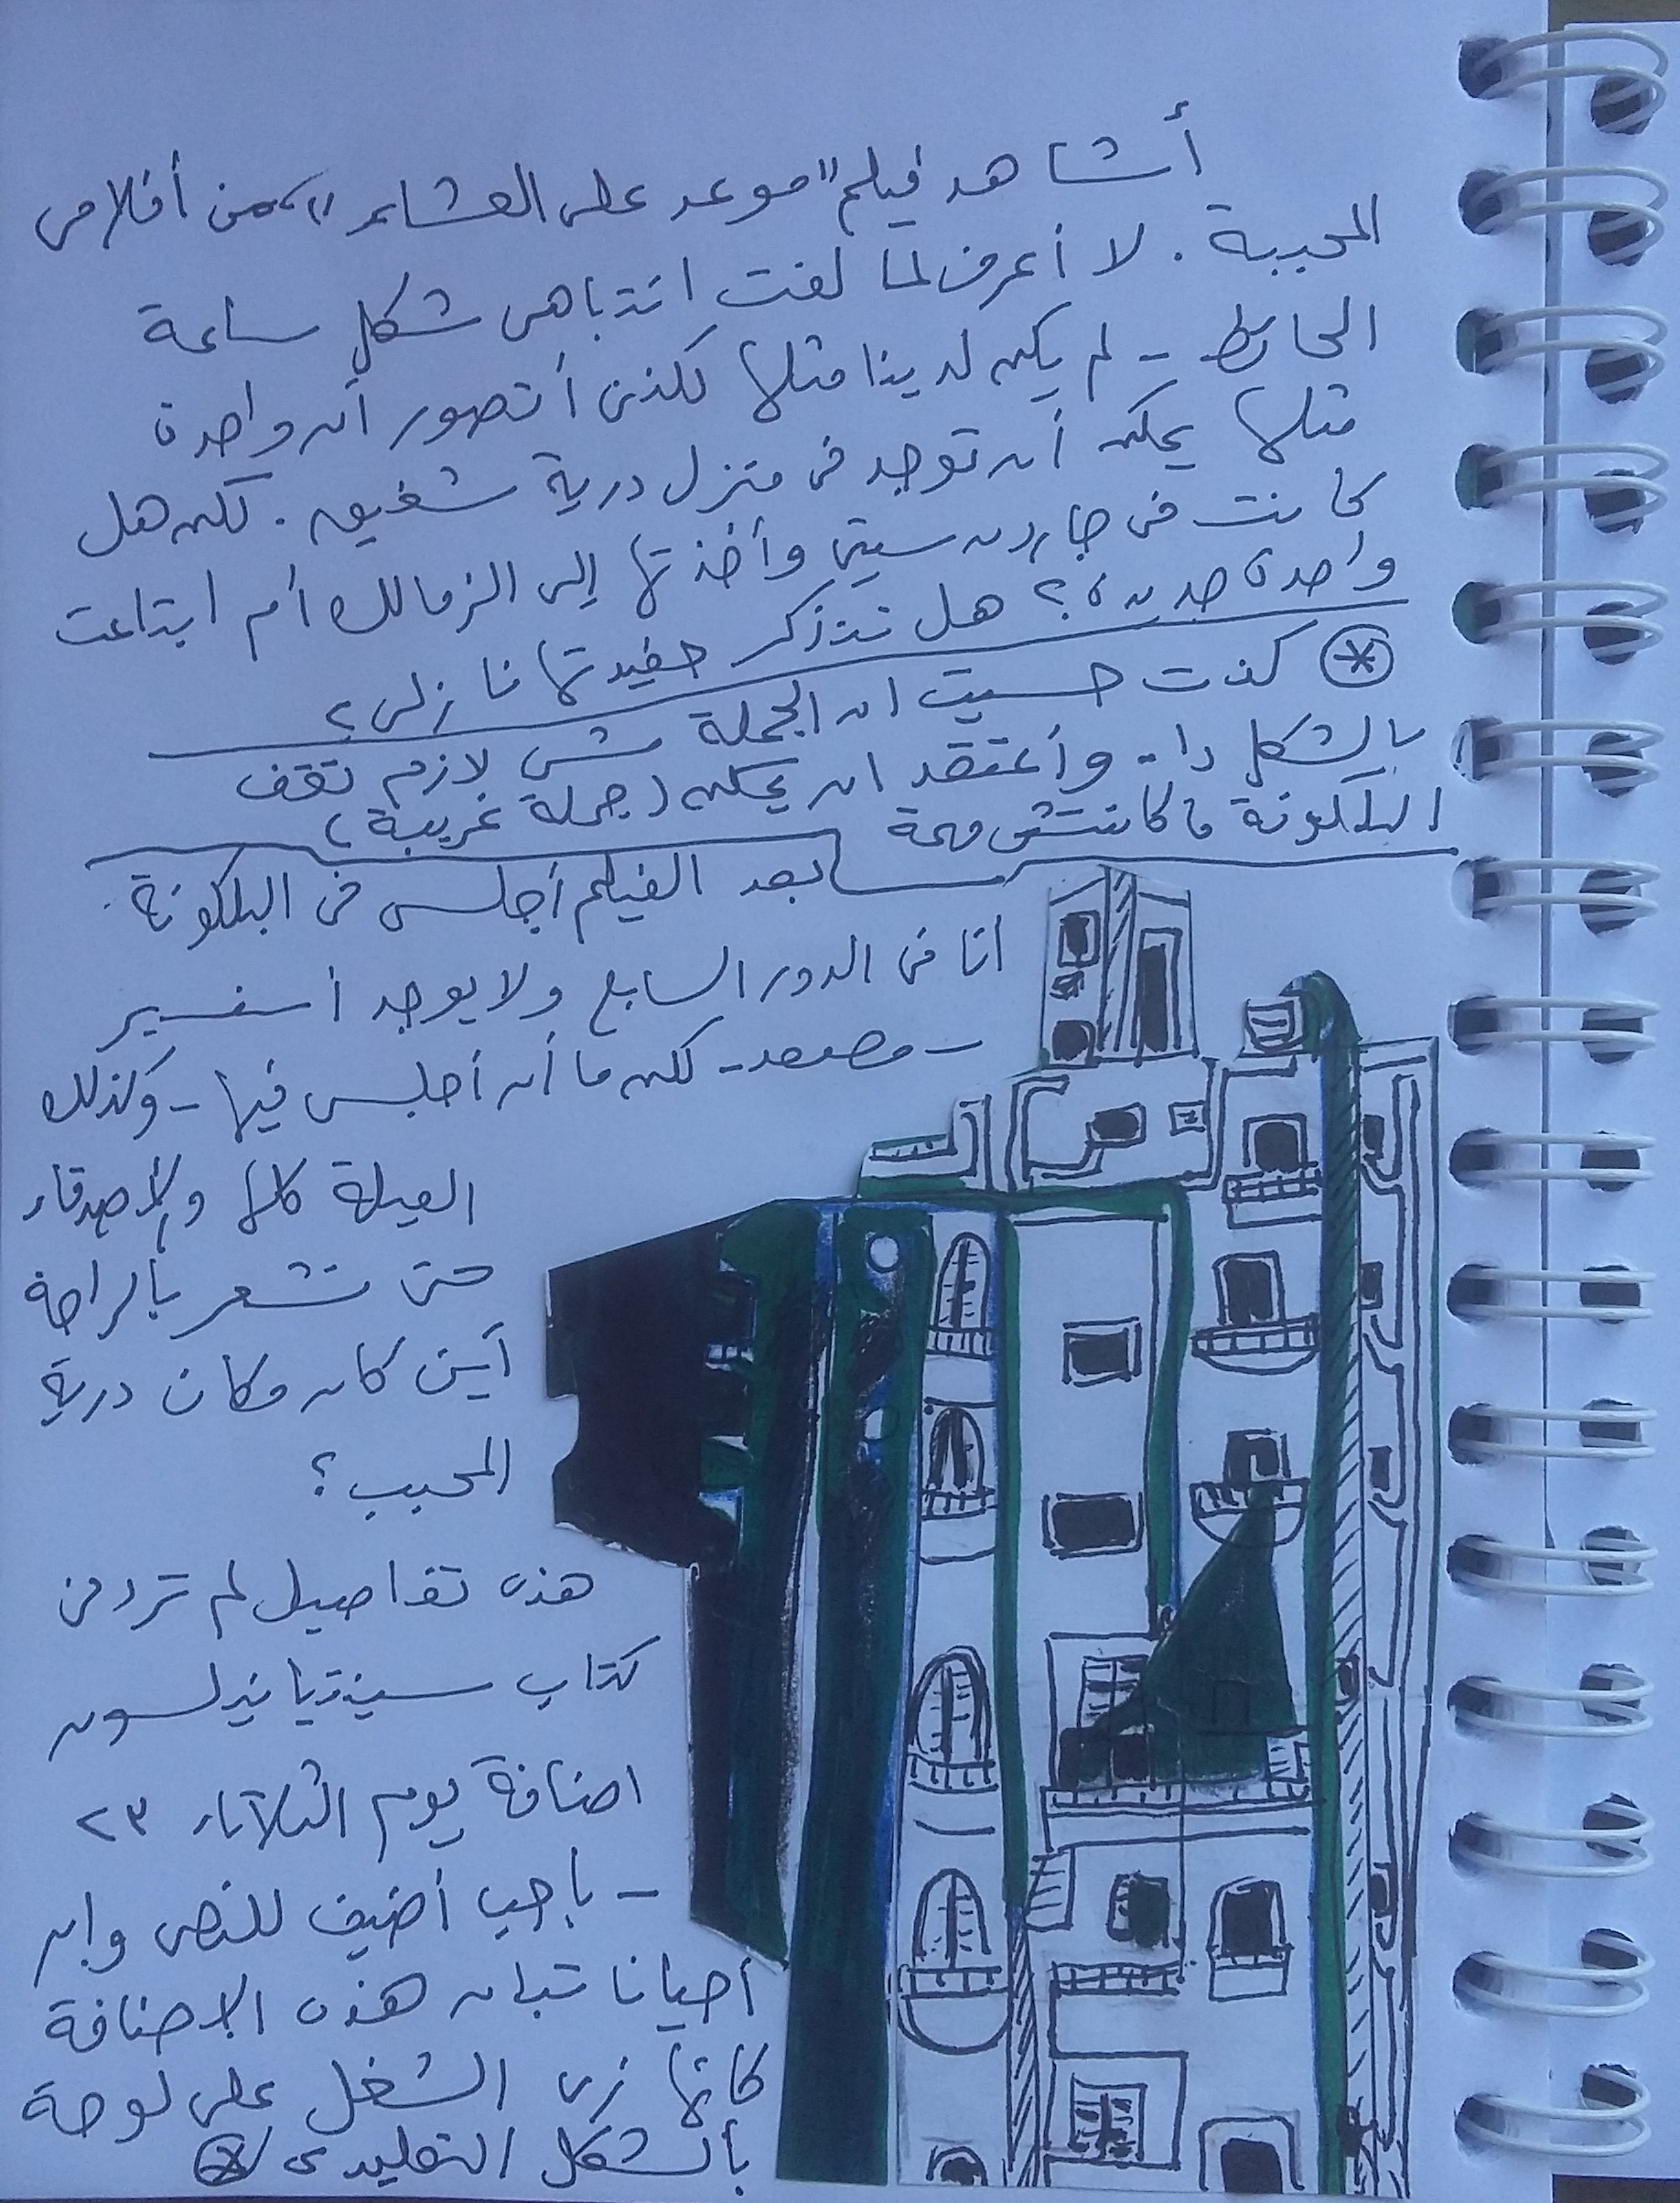 أشاهد فيلم "موعد على العشاء"، من أفلامى
المحببة. لا أعرف لما لفت انتباهى شكل ساعة
الحائط - لم يكن لدينا مثلها لكننى أتصور أن واحدة
مثلها يمكن أن توجد فى منزل درية شفيق. لكن هل
كانت فى جاردن سيتى وأخذتها إلى الزمالك أم ابتاعت
واحدة جديدة؟ هل تتذكر حفيدتها نازلى؟
* كنت حسيت ان الجملة مش لازم تقف
بالشكل دا - وأعتقد ان يمكن (جملة غريبة)
البلكونة ما كانتش مهمة
بعد الفيلم أجلس فى البلكونة.
انا فى الدور السابع ولا يوجد أسنسير
- مصعد - لكن ما أن أجلس فيها - وكذلك
العيلة كلها والأصدقاء
حتى نشعر بالراحة
أين كان مكان درية
المحبب؟
هذه تفاصيل لم ترد فى
كتاب سينتيا نيلسون
اضافة يوم الثلاثاء ٢٣
- باحب أضيف للنص وان
احيانا تبان هذه الاضافة
كانها زى الشغل على لوحة
بالشكل التقليدى *